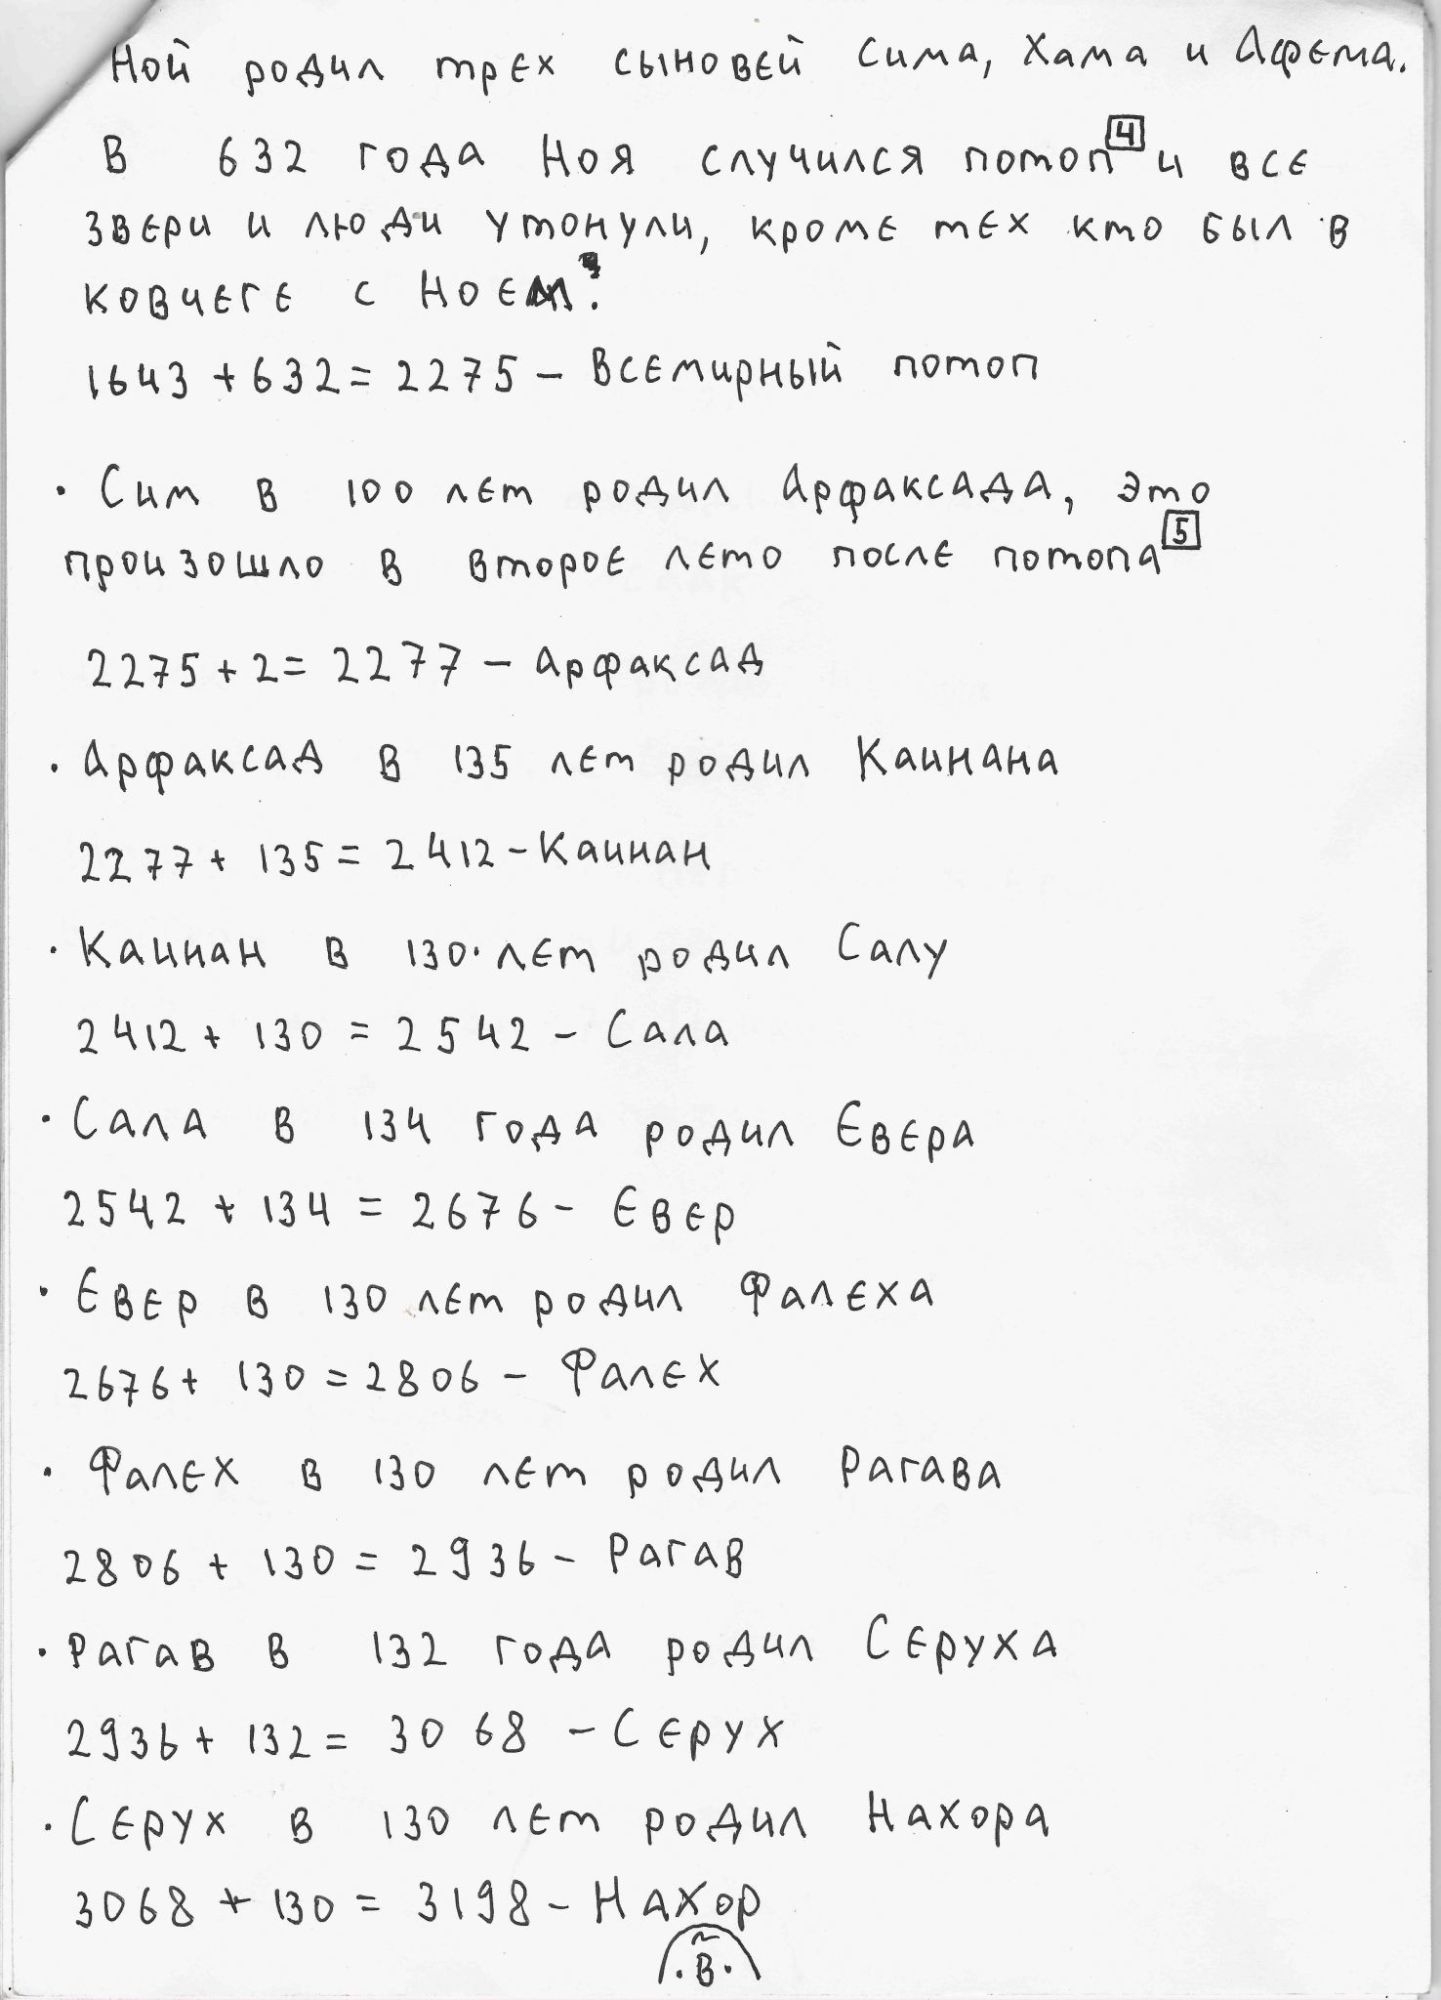 Ной родил трех сыновей Сима, Хама и Афема.
В 632 года Ноя случился потоп [4] и все
звери и люди утонули, кроме тех кто был в
ковчеге с Ноем.
1643 + 632 = 2275 – Всемирный потоп
· Сим в 100 лет родил Арфаксада, это
произошло в второе лето после потопа [5]
2275 + 2 = 2277 – Арфаксад
· Арфаксад в 135 лет родил Каинана
2277 + 135 = 2412 – Каинан
· Каинан в 130 лет родил Салу
2412 + 130 = 2542 – Сала
· Сала в 134 года родил Евера
2542 + 134 = 2676 – Евер
· Евер в 130 лет родил Фалеха
2676 + 130 = 2806 – Фалех
· Фалех в 130 лет родил Рагава
2806 + 130 = 2936 – Рагав
· Рагав в 132 года родил Серуха
2936 + 132 = 3068 – Серух
· Серух в 130 лет родил Нахора
3068 + 130 = 3198 – Нахор
·В·